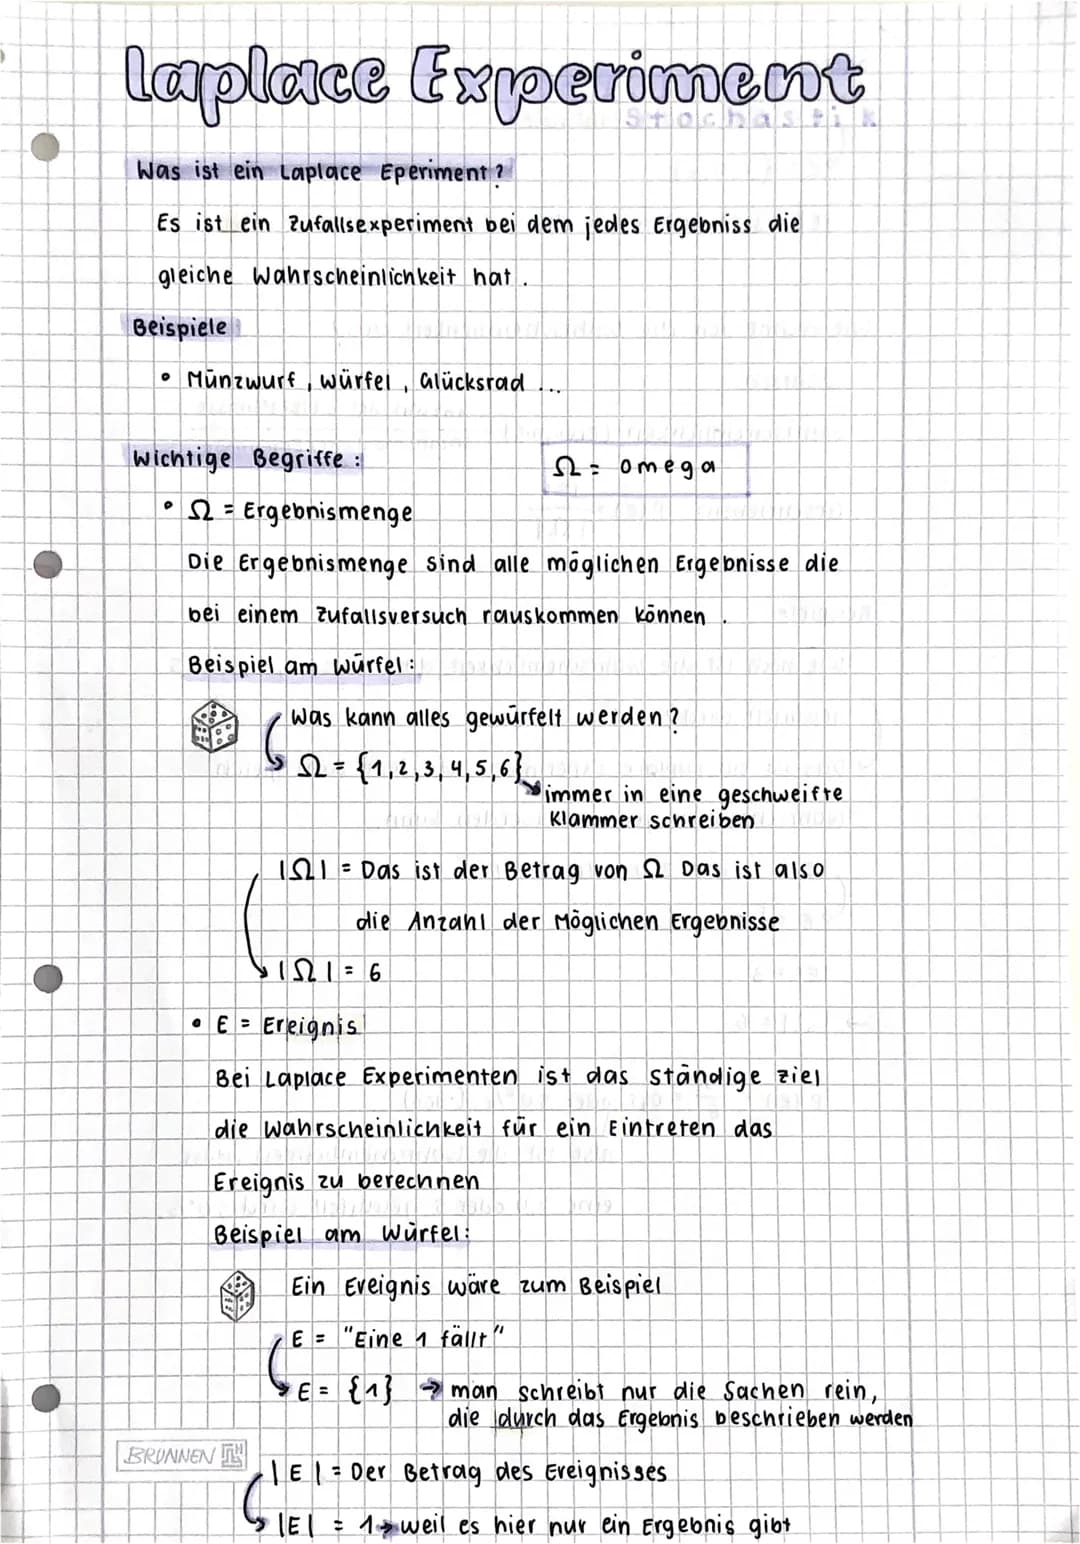 Laplace Experiment
Stochastik
Was ist ein Laplace Eperiment?
Es ist ein Zufallsexperiment bei dem jedes Ergebniss die
gleiche Wahrscheinlichkeit hat.
Beispiele
• Münzwurf, Würfel, Glücksrad ...
Wichtige Begriffe:
Ω = omega
• Ω = Ergebnismenge
Die Ergebnismenge sind alle möglichen Ergebnisse die
bei einem Zufallsversuch rauskommen können.
Beispiel am Würfel:
Was kann alles gewürfelt werden?
Ω = {1,2,3,4,5,6}
immer in eine geschweifte
Klammer schreiben
|Ω| = Das ist der Betrag von Ω Das ist also
die Anzahl der Möglichen Ergebnisse
|Ω| = 6
• E = Ereignis
Bei Laplace Experimenten ist das ständige ziel
die Wahrscheinlichkeit für ein Eintreten das
Ereignis zu berechnen
Beispiel am Würfel:
Ein Ereignis wäre zum Beispiel
E = "Eine 1 fällt"
E = {1} → man schreibt nur die Sachen rein,
die durch das Ergebnis beschrieben werden
BRUNNEN
|E| = Der Betrag des Ereignisses
|E| = 1 → weil es hier nur ein Ergebnis gibt